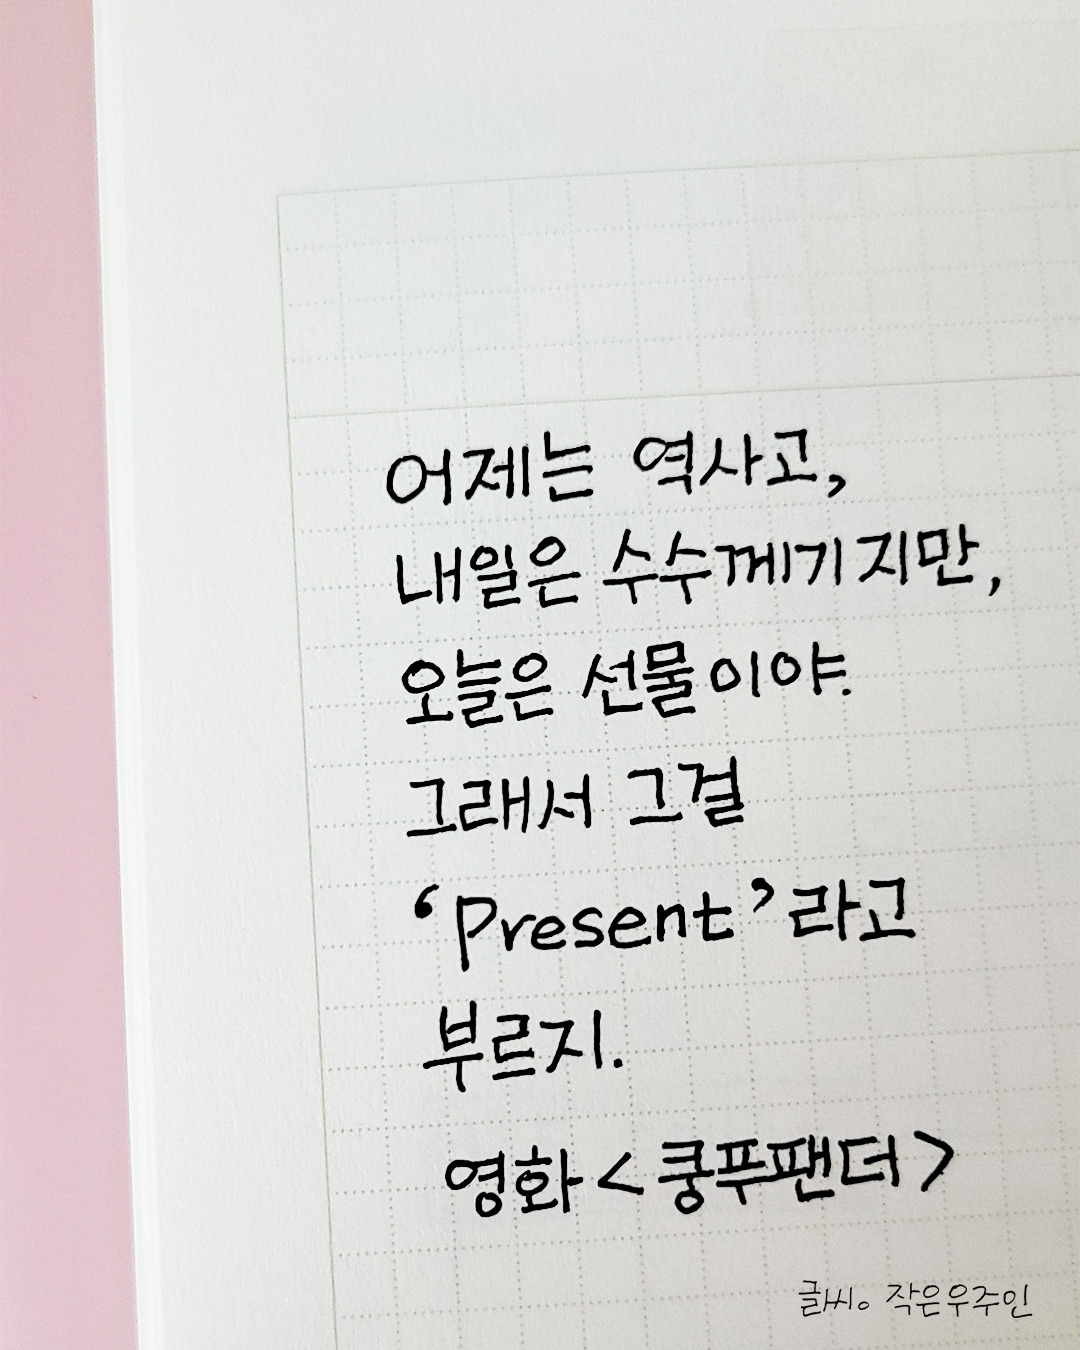 어제는 역사고,
내일은 수수께기지만,
오늘은 선물이야.
그래서 그걸
‘Present’라고
부르지.
영화<쿵푸팬더>
글씨。작은우주인